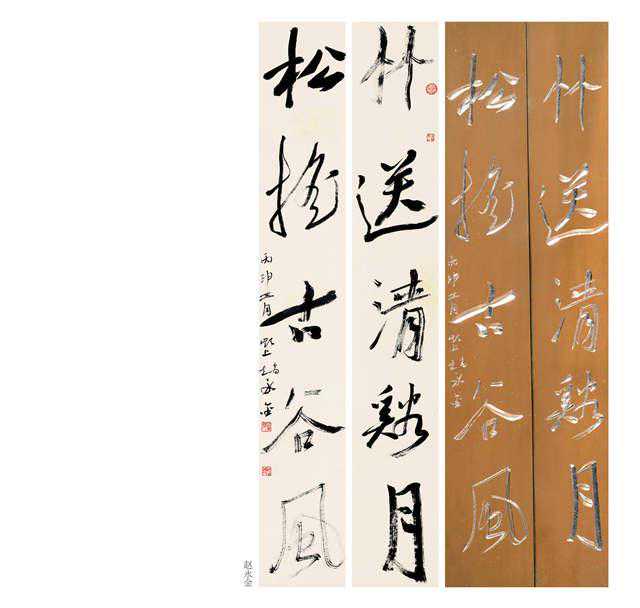 竹送清谿月
松搖古谷風
丙申 月 趙永金
竹送清谿月
松搖古谷風
丙申 月 趙永金
赵永金